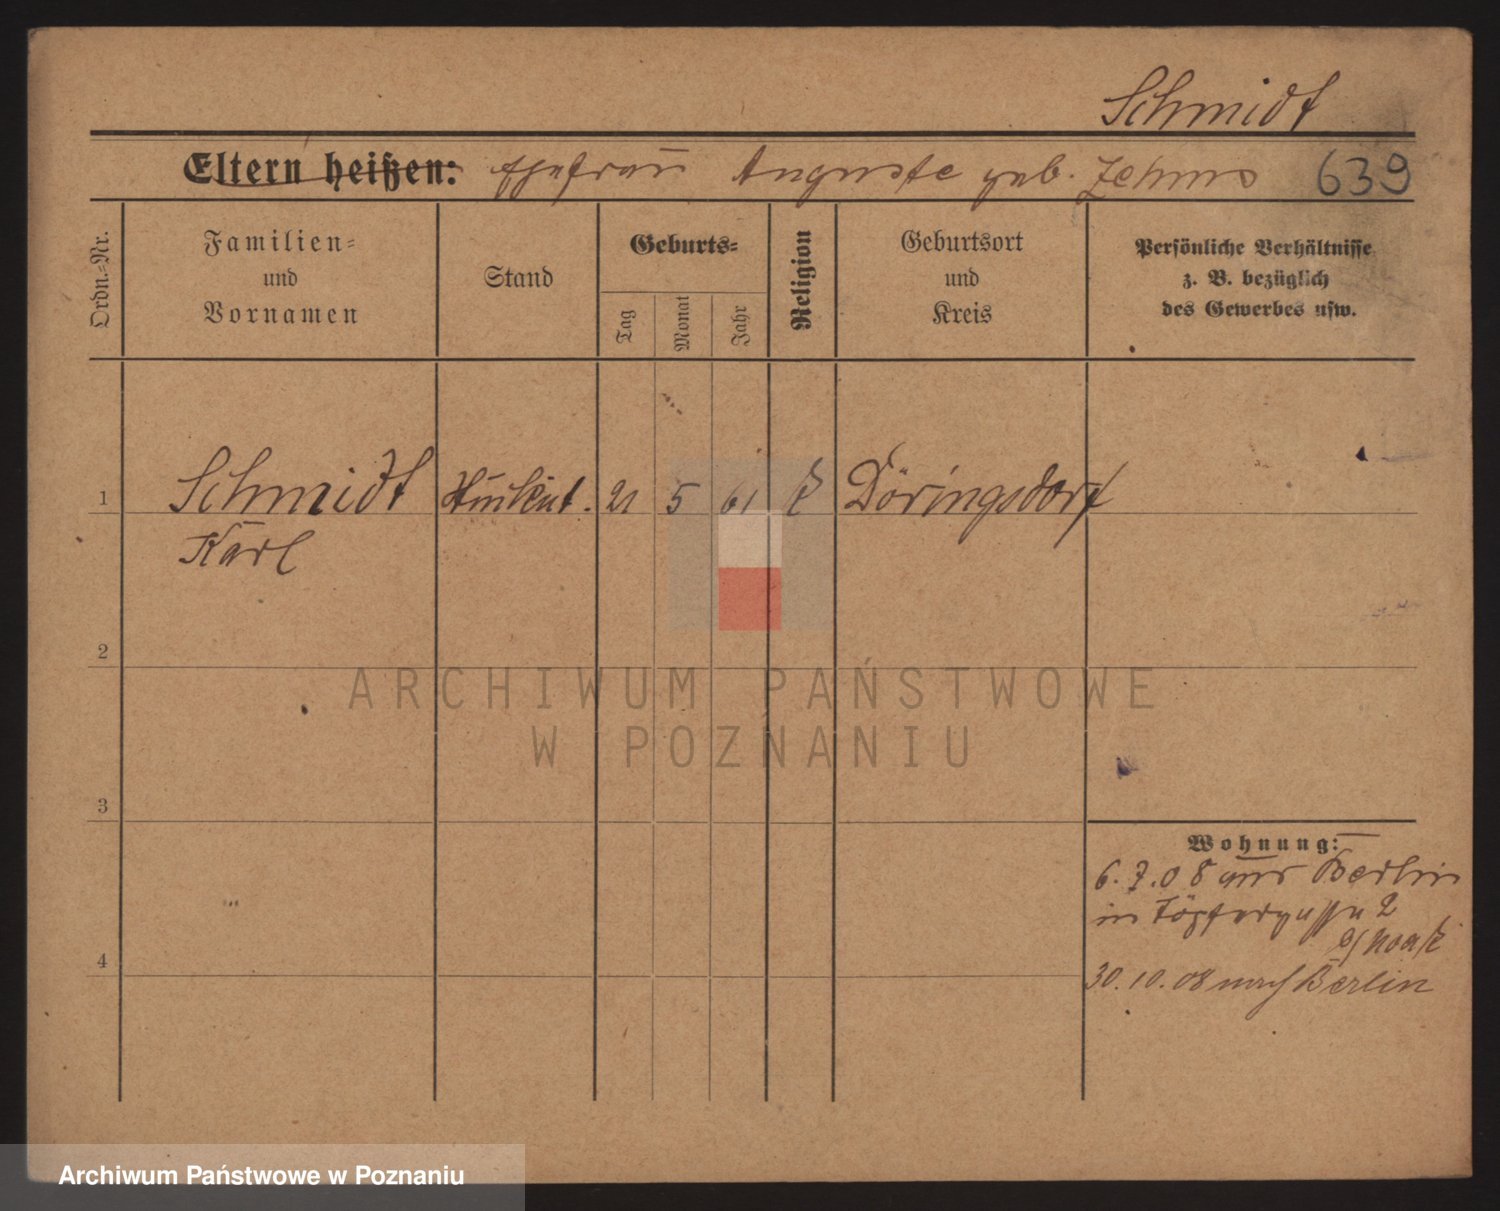 Schmidt
Eltern heißen: Ehefrau Auguste geb. 639
Ordn.-Nr.
Familien-
und
Vornamen
Stand
Geburts-
Tag
Monat
Jahr
Religion
Geburtsort
und
Kreis
Persönliche Verhältnisse
z. B. bezüglich
des Gewerbes usw.
1 Schmidt 21 5 61 Döringsdorf
Karl
2
3
4
Wohnung:
6.7.08 aus Berlin
in Töpfergasse 2
b/ Noak
30.10.08 nach Berlin
ARCHIWUM PAŃSTWOWE
W POZNANIU
Archiwum Państwowe w Poznaniu